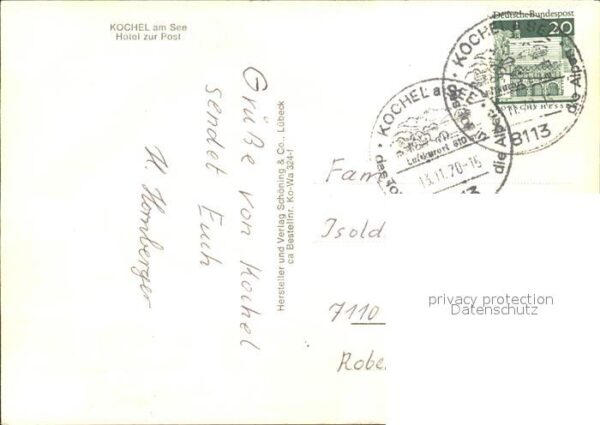 KOCHEL am See
Hotel zur Post
Grüße von Kochel
sendet Euch
H. Homberger
Hersteller und Verlag Schöning & Co., Lübeck
ca Bestellnr. Ko-Wa 324-I
Deutsche Bundespost
20
KOCHEL a. SEE
8113
KOCHEL a. SEE
Luftkurort
13.11.70-15
Fam
Isold
7110
Robe
privacy protection
Datenschutz